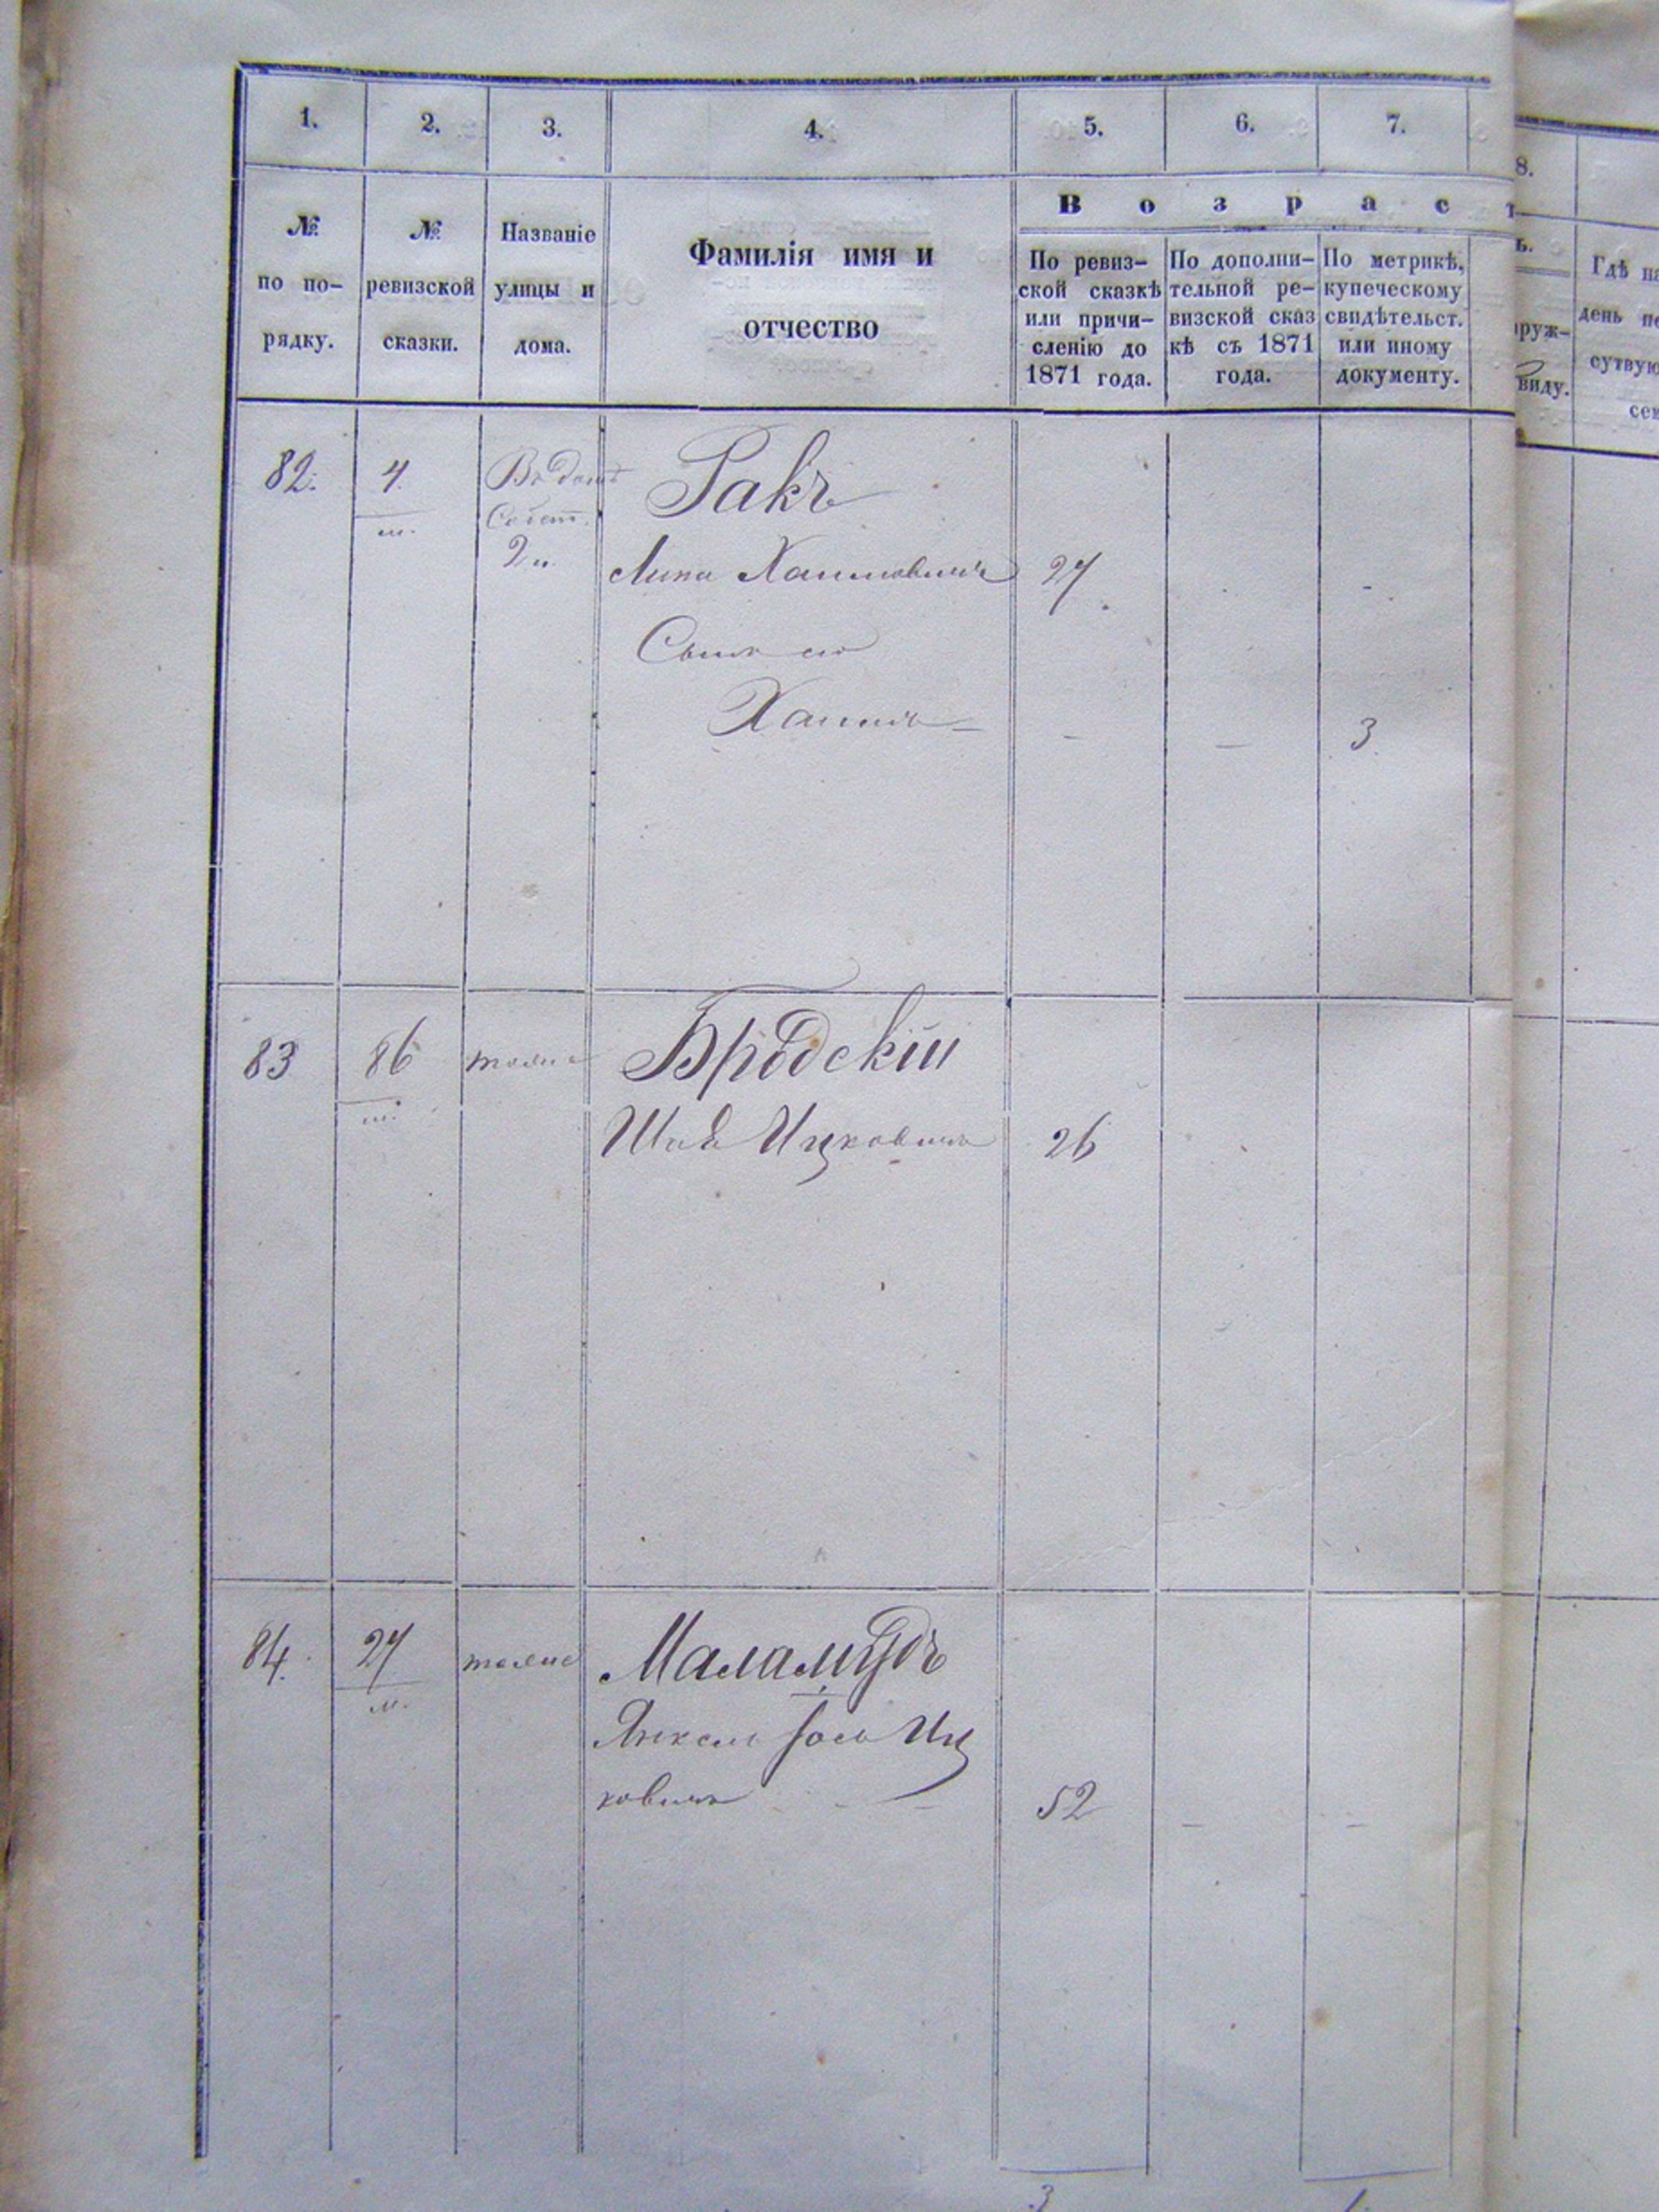 1. 2. 3. 4. 5. 6. 7.
8.
В о з р а с т
№ по по-рядку.
№ ревизской сказки.
Названіе улицы и дома.
Фамилія имя и
отчество
По ревиз-
ской сказкѣ
или причи-
сленію до
1871 года.
По дополни-
тельной ре-
визской сказ
кѣ съ 1871
года.
По метрикѣ,
купеческому
свидѣтельст.
или иному
документу.
ь.
аруж-
виду.
Гдѣ на
день по
сутвую
сем
82. 4 Въ домѣ Ракъ
м. Собст.
2 ч.
Липа Хаимовичъ 27
Сынъ его
Хаимъ — — — 3
83 86 тоже Бродскій
м. Ицковичъ 26
84. 27 тоже Маламудъ
м. Янкель Іось Иц
ковичъ — 52 — —
3 1.